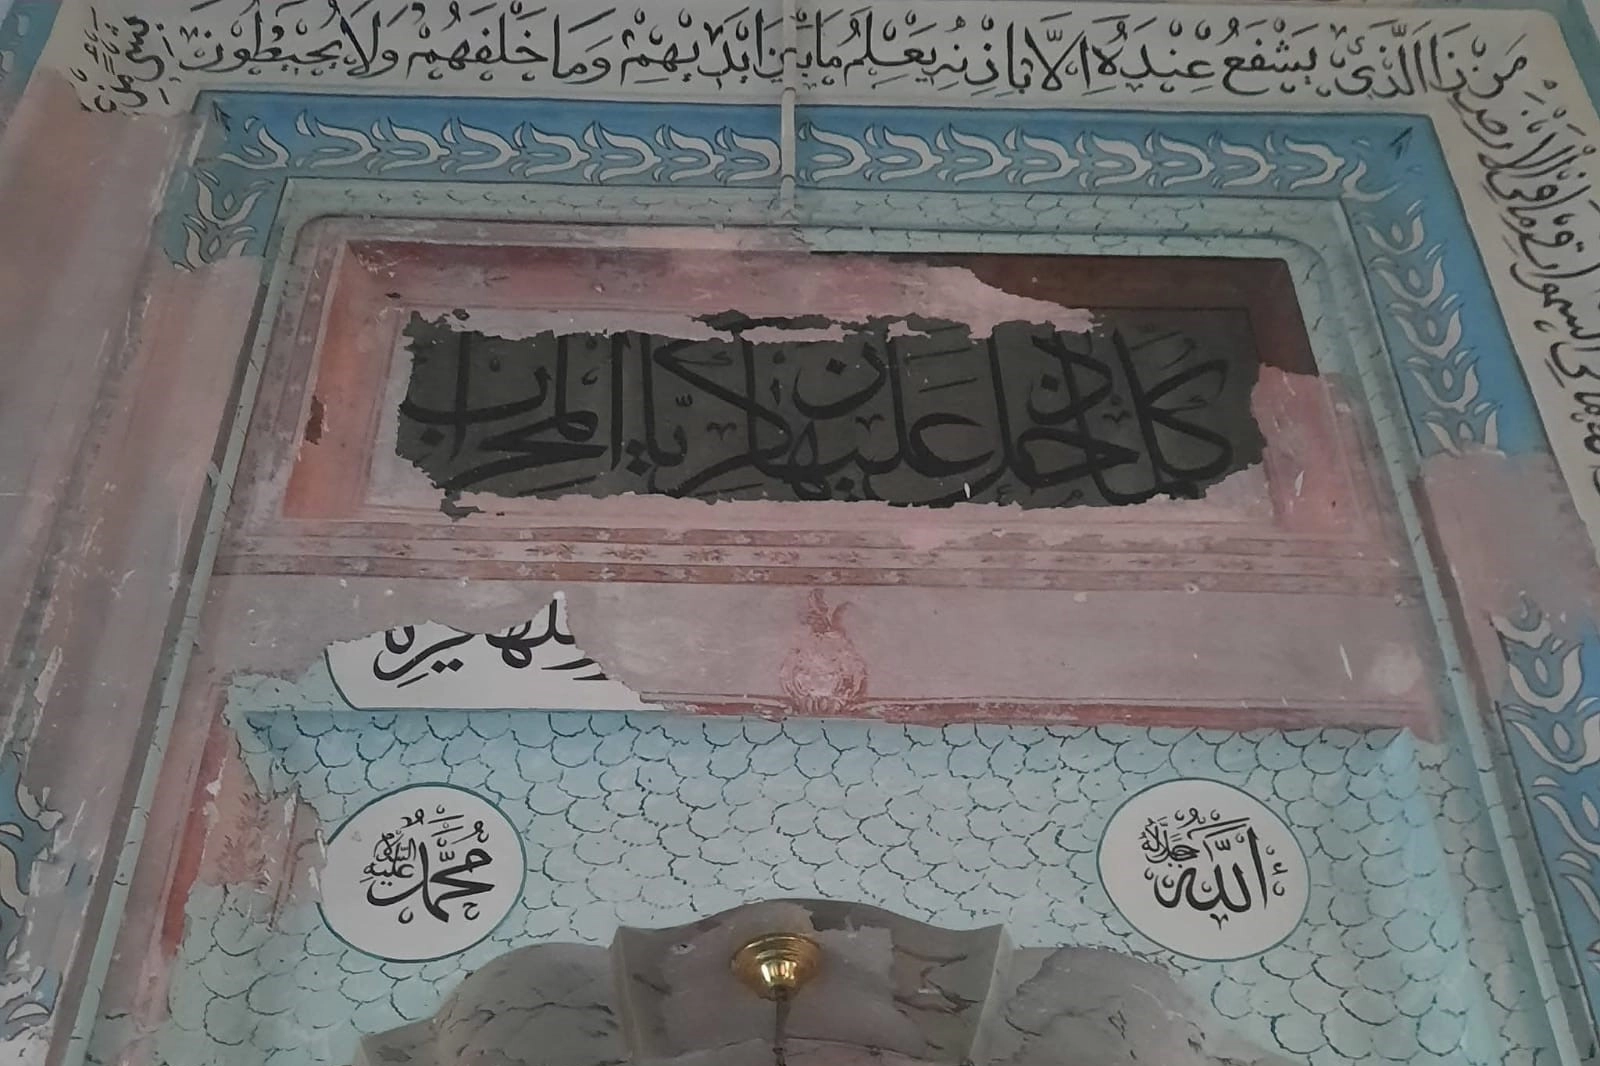 السموات وما فى الارض
مَنْ ذَا الَّذِى يَشْفَعُ عِنْدَهُ اِلَّا بِاِذْنِهِ يَعْلَمُ مَا بَيْنَ اَيْدِيهِمْ وَمَا خَلْفَهُمْ وَلَا يُحِيطُونَ
كلما دخل عليها زكريا المحراب
اللّٰه جل جلاله
محمد عليه السلام